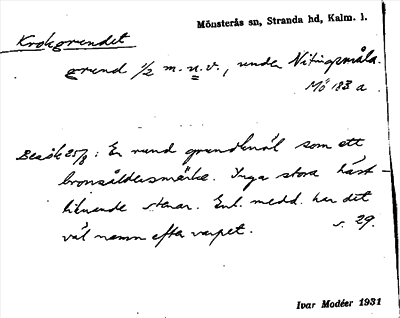 Mönsterås sn, Stranda hd, Kalm. l.
Krokgrendet
grend 1/2 m. n. v., under Nitingsmåla.
Mö 183 a
Besök 25/8: En rund grendknöl som ett
bronsåldersmärke. Inga stora
liknande stenar. Enl. medd. har det
väl namn efter varpet. s. 29.
Ivar Modéer 1931